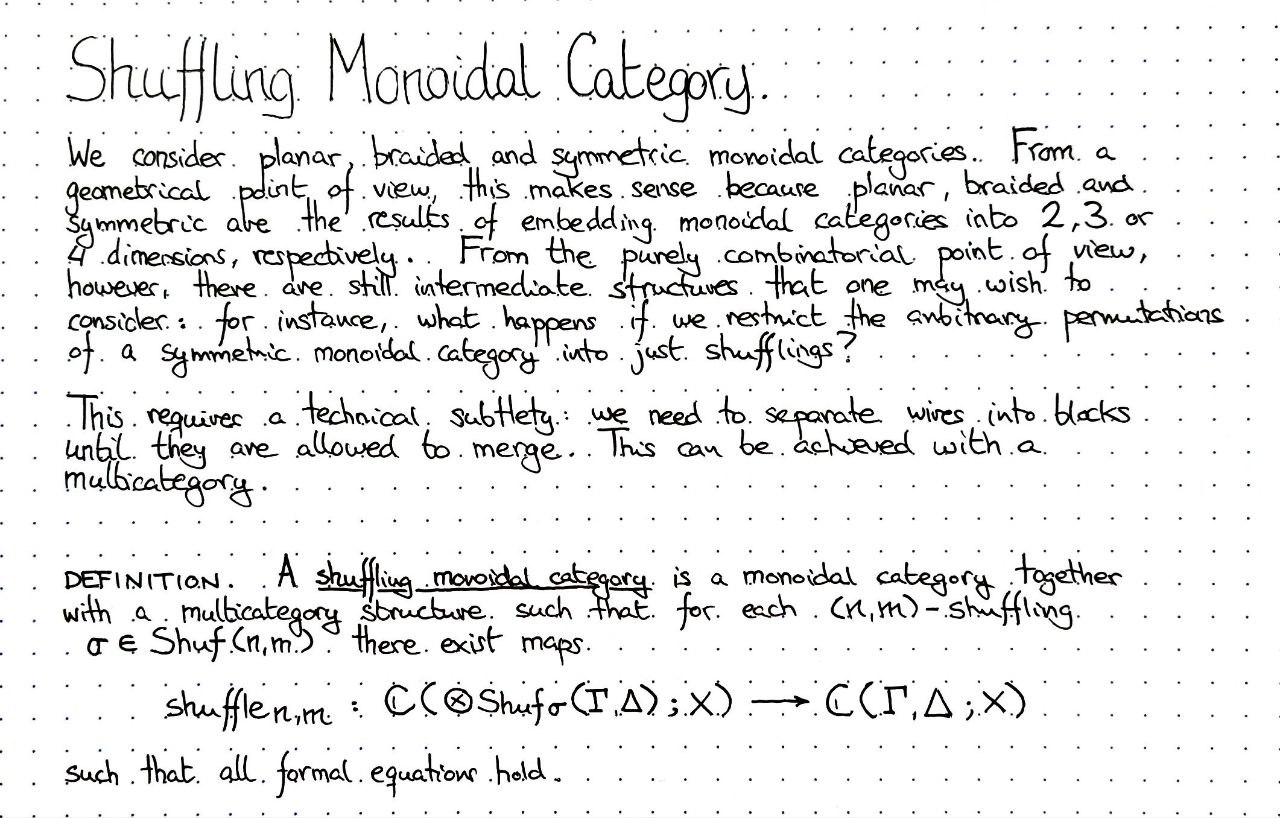 Shuffling Monoidal Category.
We consider planar, braided and symmetric monoidal categories. From a
geometrical point of view, this makes sense because planar, braided and
symmetric are the results of embedding monoidal categories into 2,3 or
4 dimensions, respectively. From the purely combinatorial point of view,
however, there are still intermediate structures that one may wish to
consider: for instance, what happens if we restrict the arbitrary permutations
of a symmetric monoidal category into just shufflings?
This requires a technical subtlety: we need to separate wires into blocks
until they are allowed to merge. This can be achieved with a
multicategory.
DEFINITION. A shuffling monoidal category is a monoidal category together
with a multicategory structure such that for each (n,m)-shuffling
σ ∈ Shuf(n,m) there exist maps
shuffle n,m : ℂ(⊗Shufσ(Γ,Δ);X) ⟶ ℂ(Γ,Δ;X)
such that all formal equations hold.